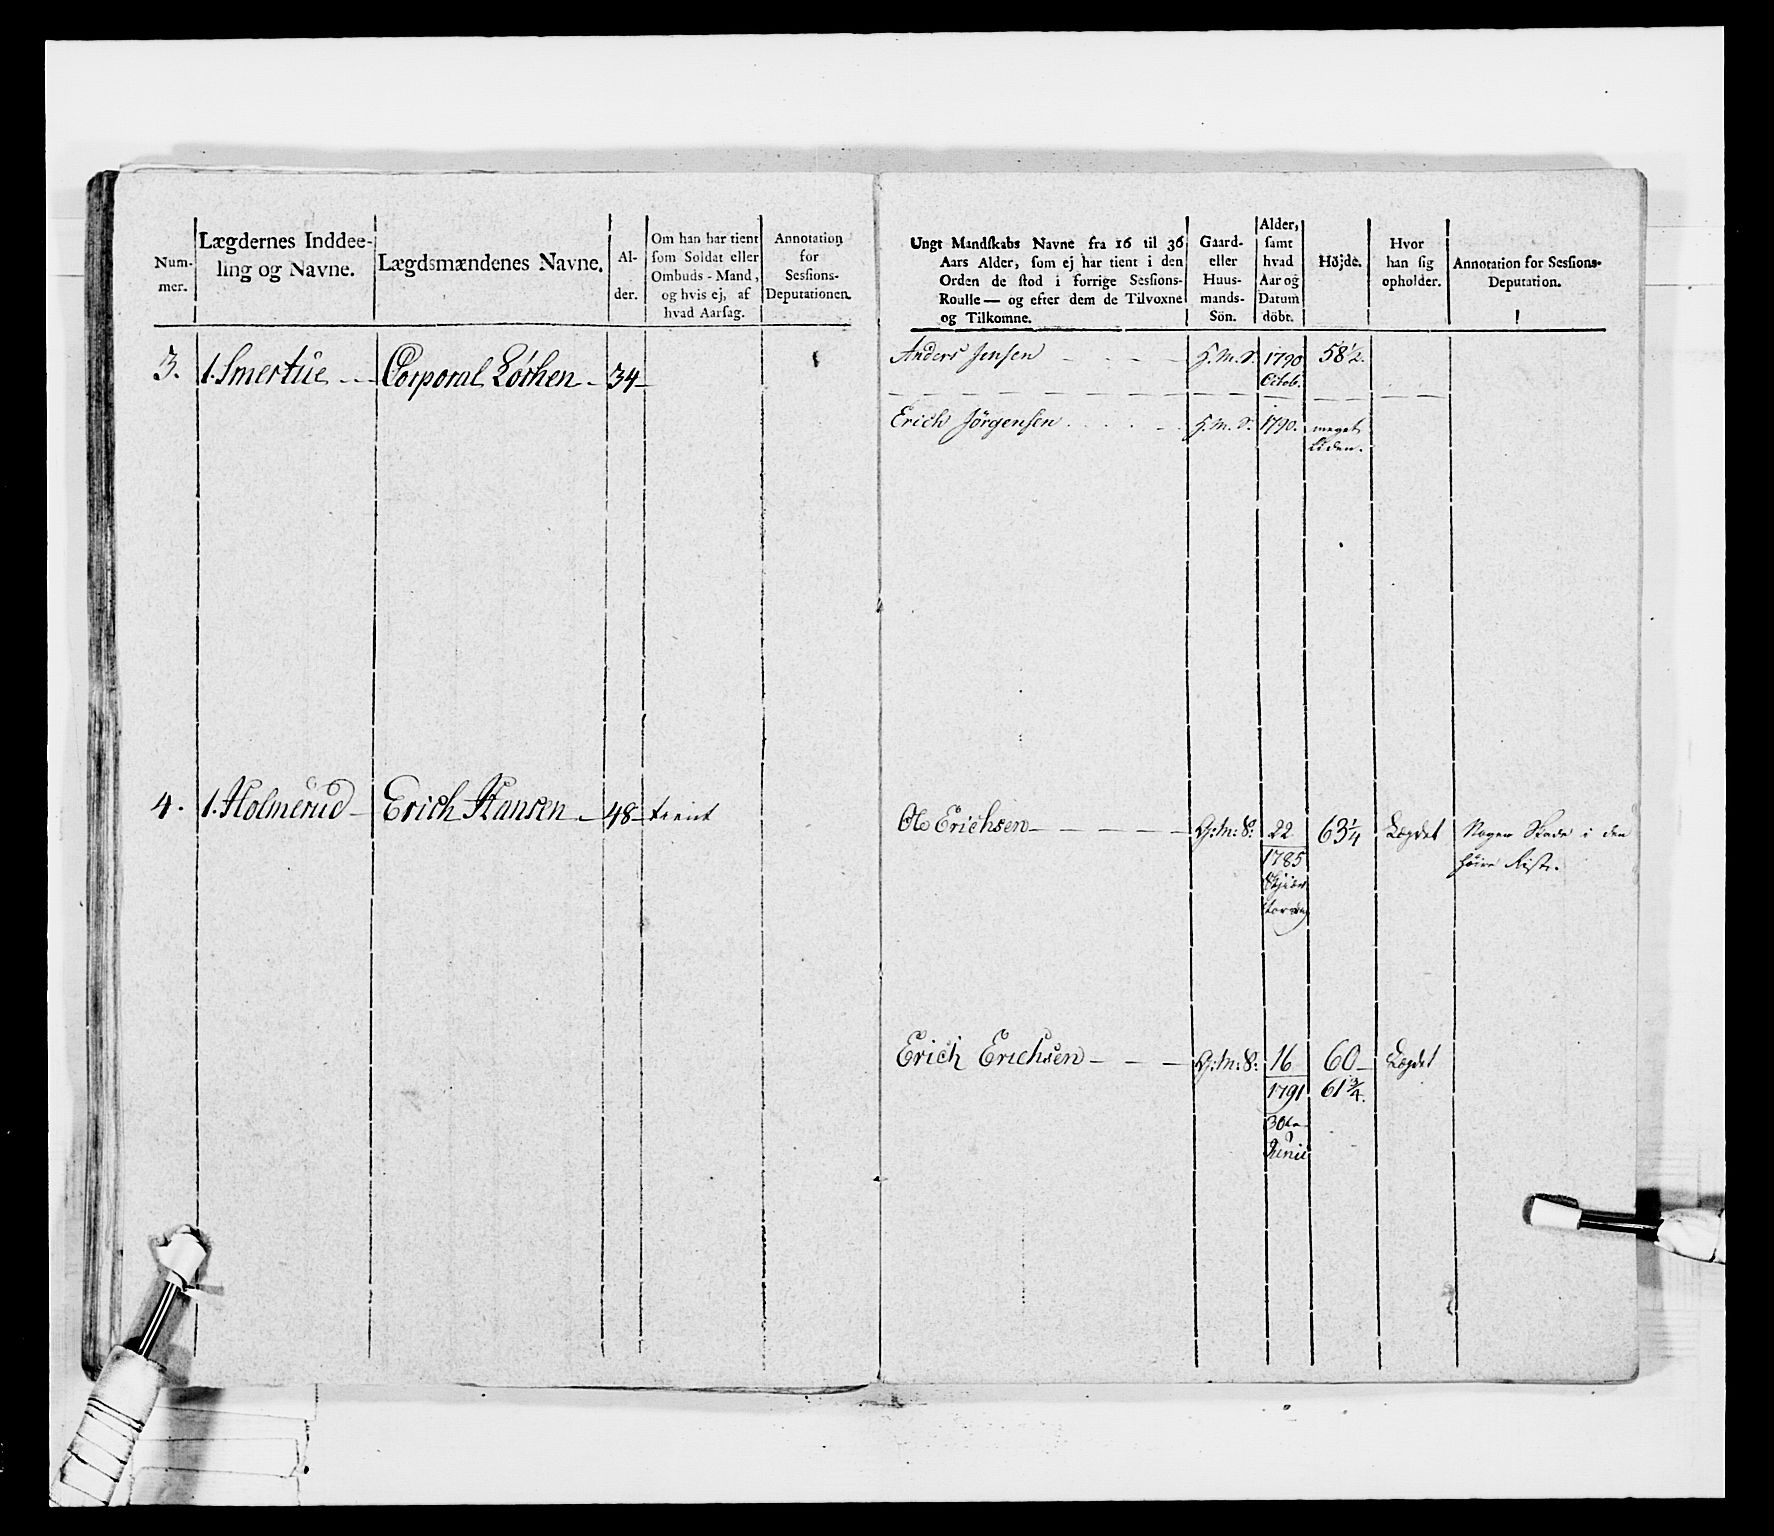 Num-
mer.
Lægdernes Inddee-
ling og Navne.
Lægdsmændenes Navne.
Al-
der.
Om han har tient
som Soldat eller
Ombuds-Mand,
og hvis ej, af
hvad Aarsag.
Annotation
for
Sessions-
Deputationen.
Ungt Mandskabs Navne fra 16 til 36
Aars Alder, som ej har tient i den
Orden de stod i forrige Sessions-
Roulle — og efter dem de Tilvoxne
og Tilkomne.
Gaard-
eller
Huus-
mands-
Sön.
Alder,
samt
hvad
Aar og
Datum
döbt.
Höjde.
Hvor
han sig
opholder.
Annotation for Sessions-
Deputation.
3. 1. Smertue Corporal 34
Anders Jensen H. M. S. 1790 58 1/2.
Octob.
Erich Jörgensen H. M. S. 1790. meget
Liden.
4. 1. Holmerud Erich Hansen 48 tient
Ole Erichsen G: M: S: 22 63 1/4 Lægdet Nogen Skade i den
1785 höire
Erich Erichsen G: M: S: 16 60 Lægdet
1791 61 3/4.
30te
Junii